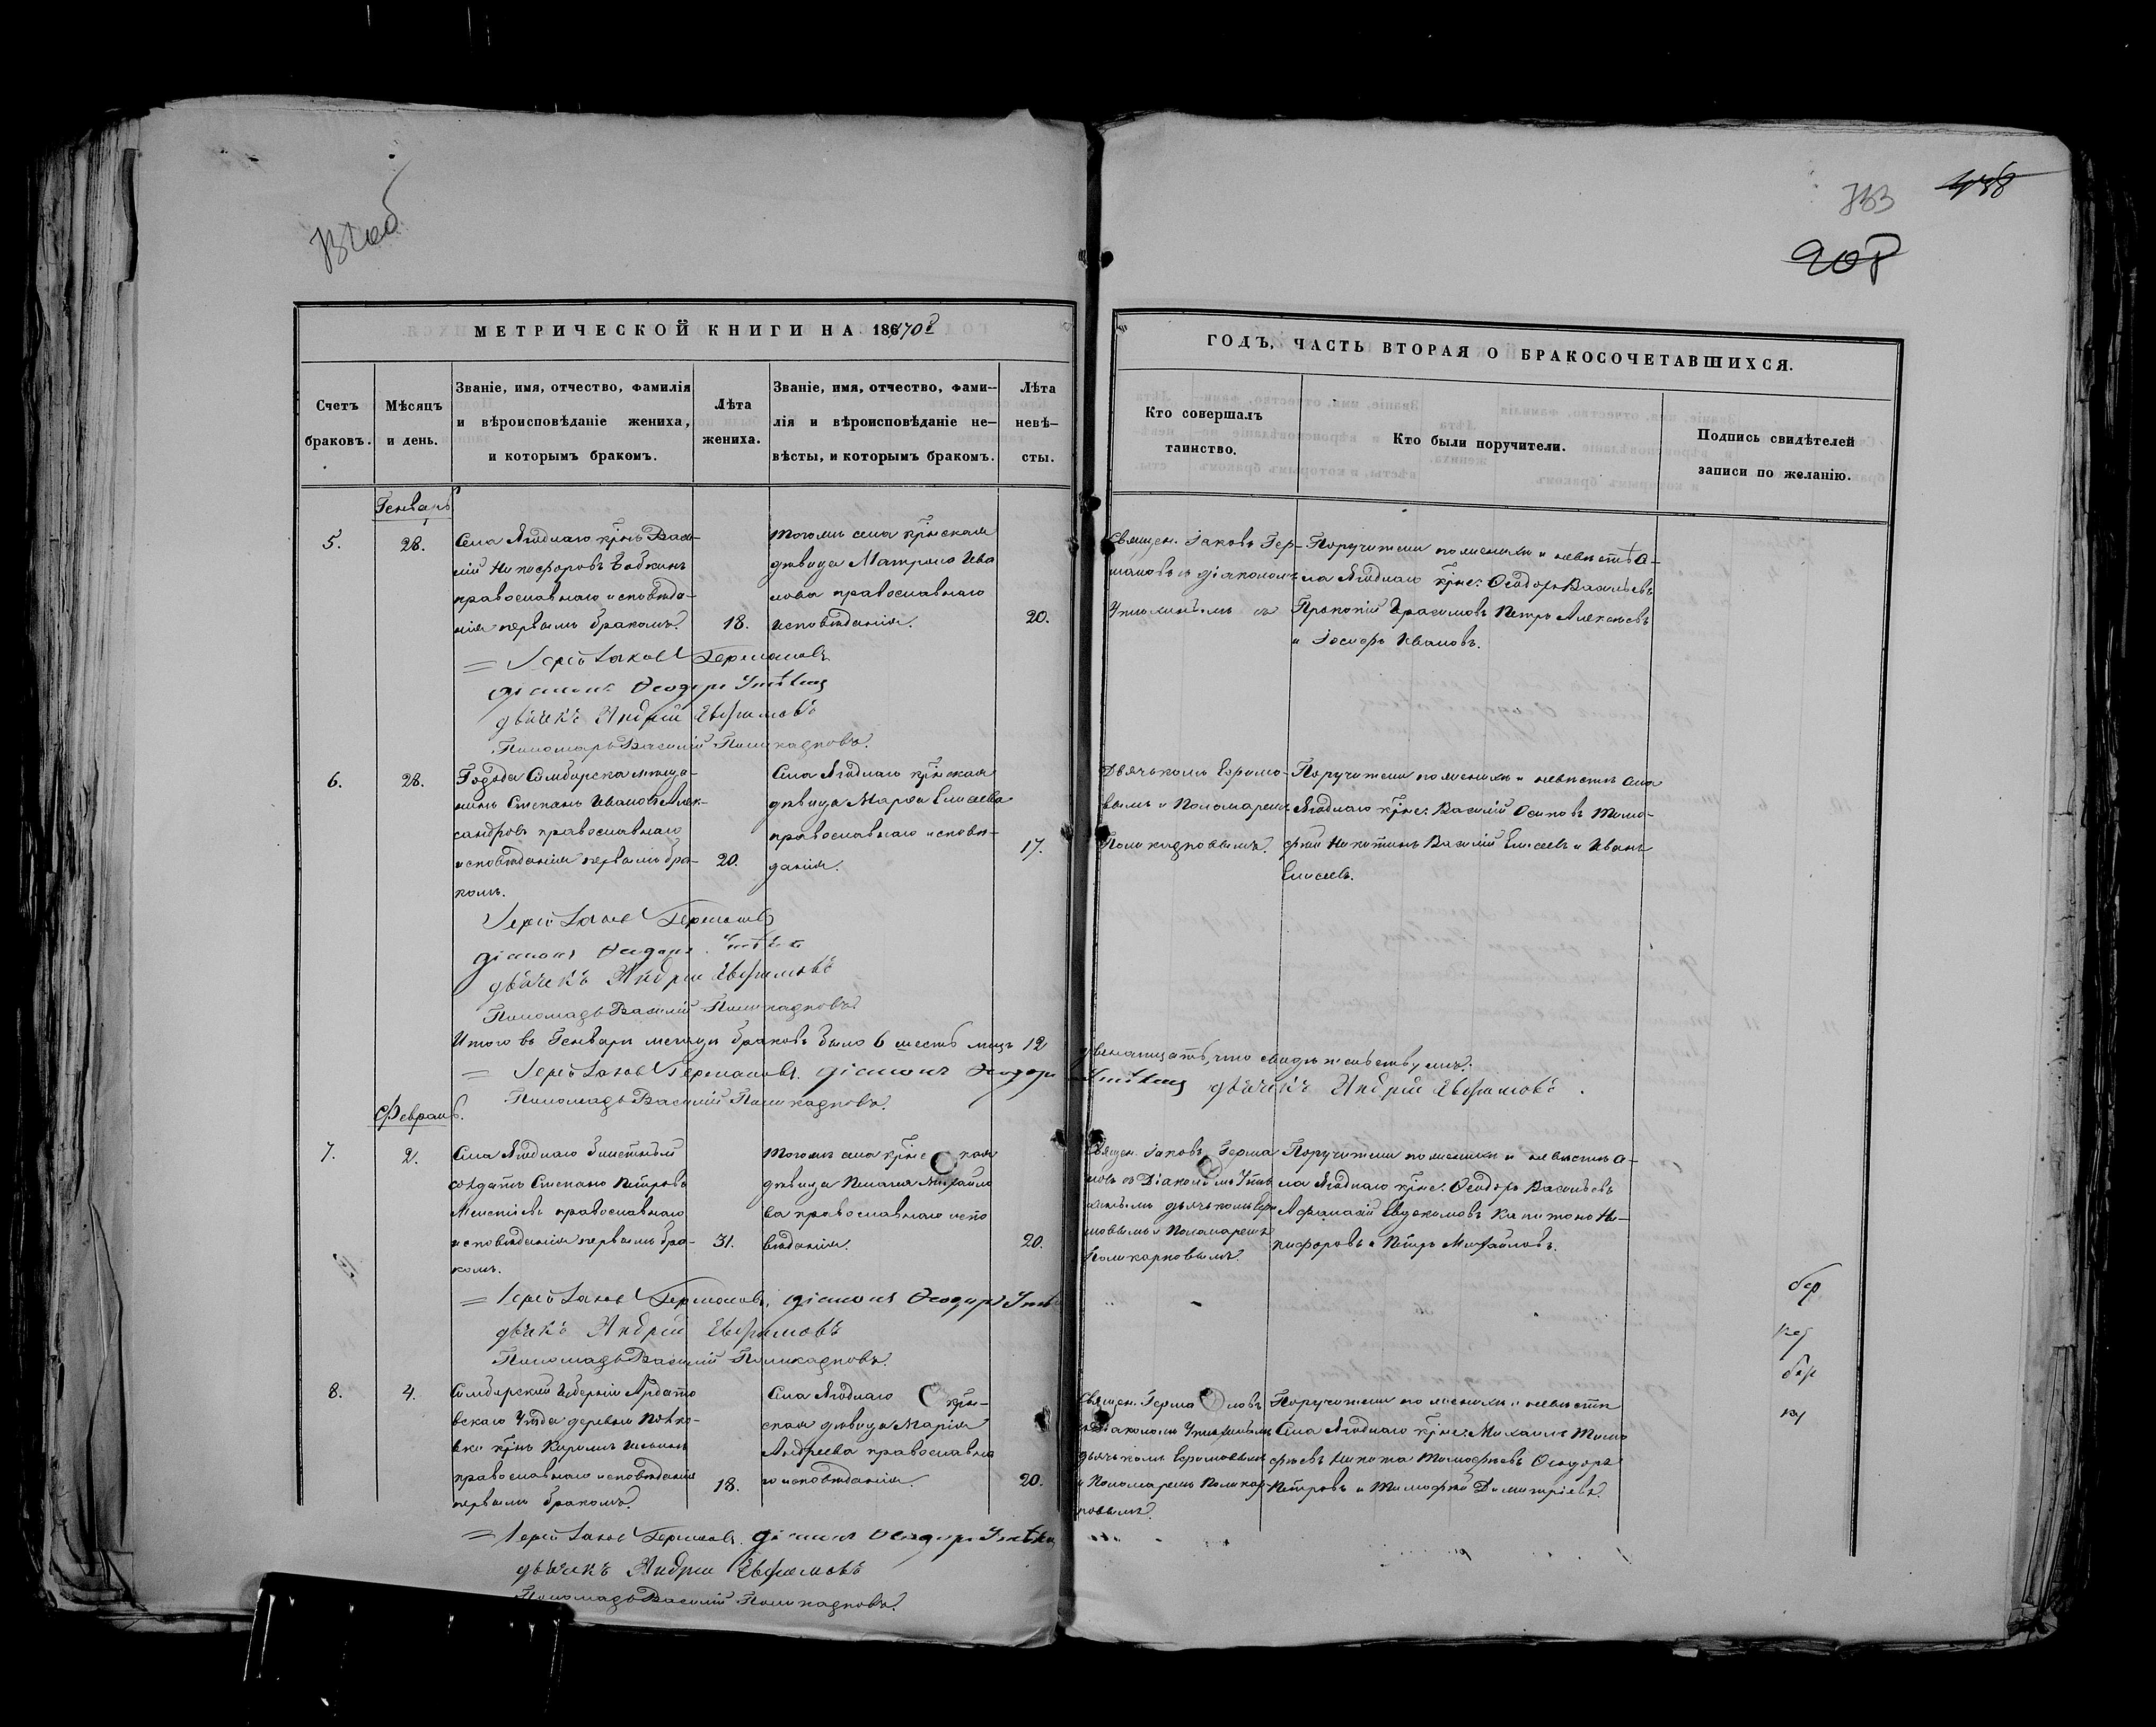 733
908
МЕТРИЧЕСКОЙ КНИГИ НА 1870
ГОДЪ, ЧАСТЬ ВТОРАЯ О БРАКОСОЧЕТАВШИХСЯ.
Счетъ браковъ.
Мѣсяцъ и день.
Званіе, имя, отчество, фамилія
и вѣроисповѣданіе жениха,
и которымъ бракомъ.
Лѣта
жениха.
Званіе, имя, отчество, фами-
лія и вѣроисповѣданіе не-
вѣсты, и которымъ бракомъ.
Лѣта
невѣ-
сты.
Кто совершалъ
таинство.
Кто были поручители.
Подпись свидѣтелей
записи по желанію.
Генварь
5.
28.
Села Ягоднаго крнъ Васи-
лій Никифоровъ Бабкинъ
православнаго исповѣда-
нія первымъ бракомъ.
18.
Тогожъ села крнская
дѣвица Матрона Ива
нова православнаго
исповѣданія.
20.
Священ. Іаковъ Гер-
мановъ съ діакономъ
съ
Поручители по женихѣ и невѣстѣ
ла Ягоднаго крне: Ѳеодоръ Васильевъ
Прокопій Герасимовъ Петръ Алексѣевъ
и Іосифъ Ивановъ.
Іерей Іаковъ Германовъ
діаконъ Ѳеодоръ
дьячекъ Андрей Евфимовъ
Пономарь Василій Поликарповъ.
6.
28.
Города Симбирска мѣща-
нинъ Степанъ Ивановъ Алек-
сандровъ православнаго
исповѣданія первымъ бра-
комъ.
20.
Села Ягоднаго крнская
дѣвица Марѳа Елисеева
православнаго исповѣ-
данія.
17.
Дьячькомъ Ефимо-
вымъ и Пономаремъ
Поликарповымъ.
Поручители по женихѣ и невѣстѣ села
Ягоднаго крне: Василій Осиповъ Тимо-
фей Никитинъ Василій Елисеевъ и Иванъ
Елисеевъ.
Іерей Іаковъ Германовъ
діаконъ Ѳеодоръ
дьячекъ Андрей Евфимовъ
Пономарь Василій Поликарповъ
Итого въ Генварѣ месяцѣ браковъ было 6 шесть лицъ 12
двенатцать, что свидѣтельствуемъ:
Іерей Іаковъ Германовъ. діаконъ Ѳеодоръ
дьячекъ Андрей Евфимовъ.
Пономарь Василій Поликарповъ.
Февраль.
7.
2.
Села Ягоднаго билетный
солдатъ Степанъ Петровъ
православнаго
исповѣданія первымъ бра-
комъ.
31.
Тогожъ села крнекая
дѣвица Пелагія Михайло
ва православнаго испо
вѣданія.
20.
Священ. Іаковъ Герма
новъ съ Діакономъ
дьячькомъ Ефи
мовымъ и Пономаремъ
Поликарповымъ.
Поручители по женихѣ и невѣстѣ
ла Ягоднаго крне: Ѳеодоръ Васильевъ
Афанасій Евдокимовъ Капитонъ Ни-
кифоровъ и Петръ Михайловъ.
Іерей Іаковъ Германовъ, діаконъ Ѳеодоръ
дьячекъ Андрей Евфимовъ
Пономарь Василій Поликарповъ.
8.
4.
Симбирской Губерніи Ардато
вскаго Уѣзда деревни
крнъ
православнаго исповѣданія
первымъ бракомъ.
18.
Села Ягоднаго крн-
ская дѣвица Марія
Андреева православна
го исповѣданія.
20.
Священ. Германовъ
Діакономъ
дьячькомъ Ефимовымъ
и Пономаремъ Поликар-
повымъ.
Поручители по женихѣ и невѣстѣ
Села Ягоднаго крне: Михаилъ Тимо
фѣевъ Никита Тимофѣевъ Ѳеодоръ
Петровъ и Тимофей Димитріевъ.
Іерей Іаковъ Германовъ. діаконъ Ѳеодоръ
дьячекъ Андрей Евфимовъ
Пономарь Василій Поликарповъ.